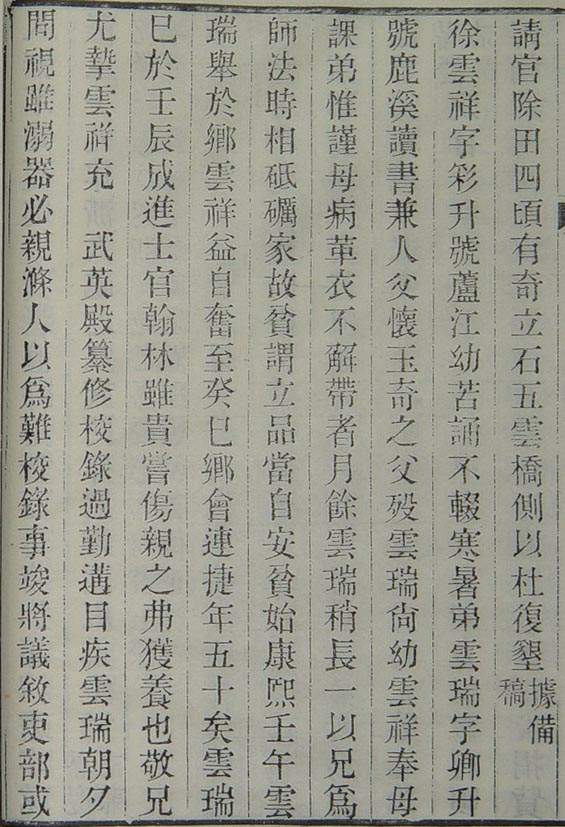 請官除田四頃有奇立石五雲橋側以杜復墾據備稿
徐雲祥字彩升號蘆江幼苦誦不輟寒暑弟雲瑞字卿升
號鹿溪讀書兼人父懷玉奇之父歿雲瑞尙幼雲祥奉母
課弟惟謹母病革衣不解帶者月餘雲瑞稍長一以兄爲
師法時相砥礪家故貧謂立品當自安貧始康熙壬午雲
瑞舉於鄉雲祥益自奮至癸巳鄉會連捷年五十矣雲瑞
巳於壬辰成進士官翰林雖貴嘗傷親之弗獲養也敬兄
尤摯雲祥充武英殿纂修校錄過勤遘目疾雲瑞朝夕
問視雖溺器必親滌人以爲難校錄事竣將議敘吏部或